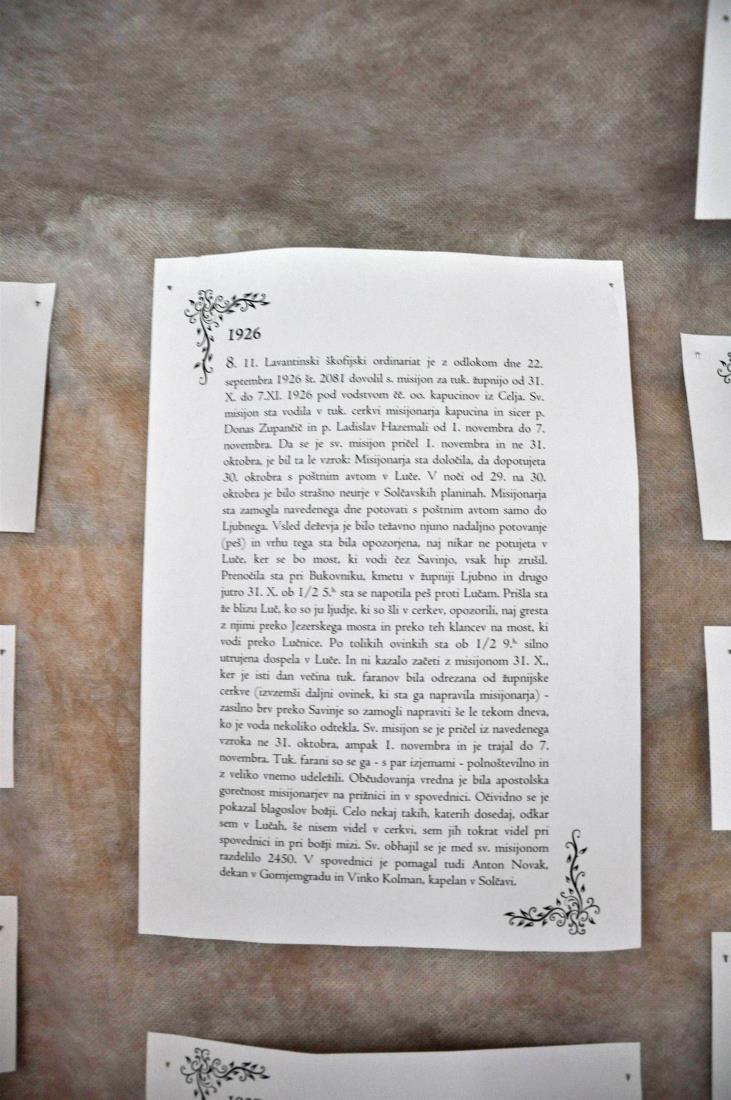 1926
8. 11. Lavantinski škofijski ordinariat je z odlokom dne 22.
septembra 1926 št. 2081 dovolil s. misijon za tuk. župnijo od 31.
X. do 7.XI. 1926 pod vodstvom čč. oo. kapucinov iz Celja. Sv.
misijon sta vodila v tuk. cerkvi misijonarja kapucina in sicer p.
Donas Zupančič in p. Ladislav Hazemali od 1. novembra do 7.
novembra. Da se je sv. misijon pričel 1. novembra in ne 31.
oktobra, je bil ta le vzrok: Misijonarja sta določila, da dopotujeta
30. oktobra s poštnim avtom v Luče. V noči od 29. na 30.
oktobra je bilo strašno neurje v Solčavskih planinah. Misijonarja
sta zamogla navedenega dne potovati s poštnim avtom samo do
Ljubnega. Vsled deževja je bilo težavno njuno nadaljno potovanje
(peš) in vrhu tega sta bila opozorjena, naj nikar ne potujeta v
Luče, ker se bo most, ki vodi čez Savinjo, vsak hip zrušil.
Prenočila sta pri Bukovniku, kmetu v župniji Ljubno in drugo
jutro 31. X. ob 1/2 5.h sta se napotila peš proti Lučam. Prišla sta
že blizu Luč, ko so ju ljudje, ki so šli v cerkev, opozorili, naj gresta
z njimi preko Jezerskega mosta in preko teh klancev na most, ki
vodi preko Lučnice. Po tolikih ovinkih sta ob 1/2 9.h silno
utrujena dospela v Luče. In ni kazalo začeti z misijonom 31. X.,
ker je isti dan večina tuk. faranov bila odrezana od župnijske
cerkve (izvzemši daljni ovinek, ki sta ga napravila misijonarja) -
zasilno brv preko Savinje so zamogli napraviti še le tekom dneva,
ko je voda nekoliko odtekla. Sv. misijon se je pričel iz navedenega
vzroka ne 31. oktobra, ampak 1. novembra in je trajal do 7.
novembra. Tuk. farani so se ga - s par izjemami - polnoštevilno in
z veliko vnemo udeležili. Občudovanja vredna je bila apostolska
gorečnost misijonarjev na prižnici in v spovednici. Očividno se je
pokazal blagoslov božji. Celo nekaj takih, katerih dosedaj, odkar
sem v Lučah, še nisem videl v cerkvi, sem jih tokrat videl pri
spovednici in pri božji mizi. Sv. obhajil se je med sv. misijonom
razdelilo 2450. V spovednici je pomagal tudi Anton Novak,
dekan v Gornjemgradu in Vinko Kolman, kapelan v Solčavi.